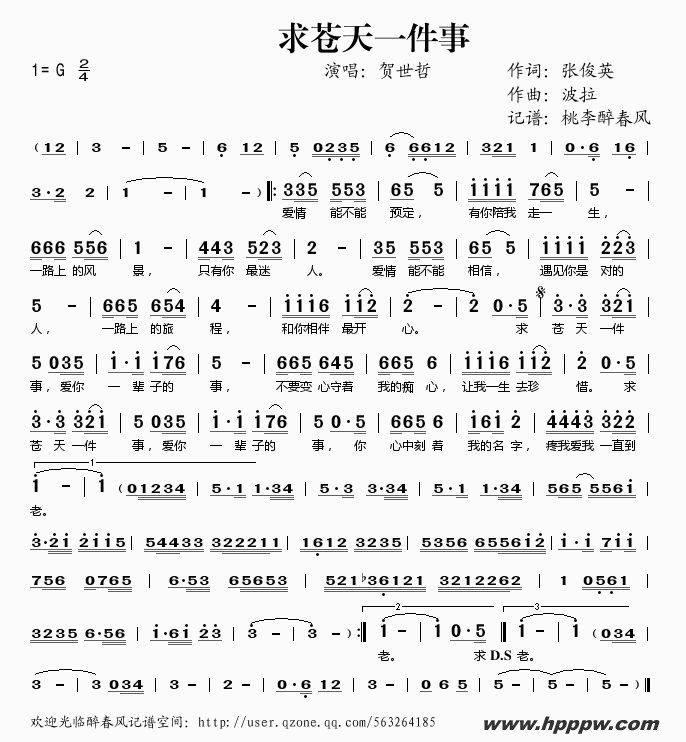 求苍天一件事
1=G 2/4 演唱：贺世哲 作词：张俊英
作曲：波拉
记谱：桃李醉春风
(12 | 3 - | 5 - | 6 12 | 5 0235 | 6 6612 | 321 1 | 0·6 16 |
3·2 2 | 1 - | 1 - ) ‖: 335 553 | 65 5 | 1111 765 | 5 - |
爱情 能不能 预定， 有你陪我 走一 生，
666 556 | 1 - | 443 523 | 2 - | 35 553 | 65 5 | 1111 223 |
一路上 的风 景， 只有你 最迷 人。 爱情 能不能 相信， 遇见你是 对的
5 - | 665 654 | 4 - | 1116 112 | 2 - | 2 0·5 | 3·3 321 |
人， 一路上 的旅 程， 和你相伴 最开 心。 求 苍 天 一件
5 035 | 1·1 176 | 5 - | 665 645 | 665 6 | 1116 112 | 2 0·5 |
事，爱你 一 辈子的 事， 不要变 心守着 我的痴 心， 让我一生 去珍 惜。 求
3·3 321 | 5 035 | 1·1 176 | 5 0·5 | 665 6 | 161 2 | 4443 322 |
苍 天 一件 事，爱你 一 辈子的 事， 你 心中刻 着 我的名 字， 疼我爱我 一直到
1
1 - | 1 (01234 | 5·1 1·34 | 5·3 3·34 | 5·34 321 | 565 5561 |
老。
3·21 2115 | 54433 322211 | 1612 3235 | 5356 655612 | 1·1 711 |
756 0765 | 6·53 65653 | 521♭36121 3212262 | 1 0561 |
2 3
3235 6·56 | 1·61 23 | 3 - | 3 - ) :‖ 1 - | 1 0·5 ‖ 1 - | 1 (034 |
老。 求 D.S 老。
3 - | 3 034 | 3 - | 2 - | 0·6 12 | 3 - | 3 - | 5 - | 5 - ) ‖
欢迎光临醉春风记谱空间：http://user.qzone.qq.com/563264185
www.hpppw.com